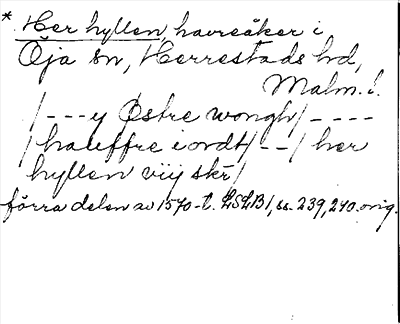 * Her hyllen, havreåker i
Öja sn, Herrestads hd,
Malm. l.
/---y Østre wongh/----
/hauffre iordt/--/her
hyllen viij skr/
förra delen av 1570-t. LSLB1, ss. 239, 240. orig.